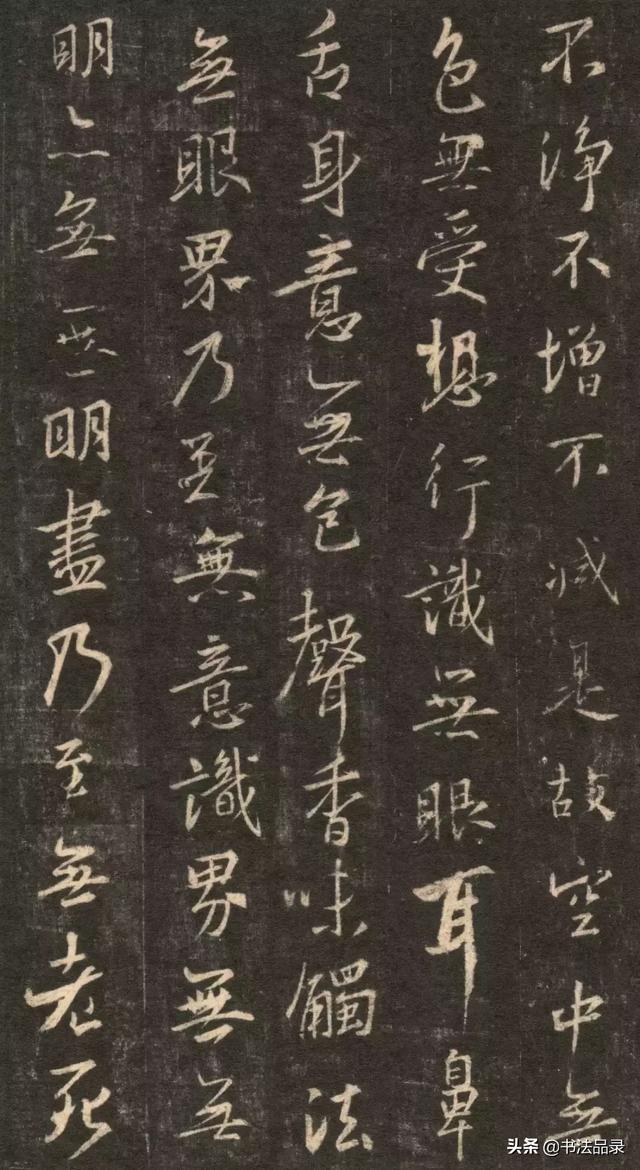 不淨不增不減是故空中無
色無受想行識無眼耳鼻
舌身意無色聲香味觸法
無眼界乃至無意識界無無
明亦無無明盡乃至無老死
头条 @书法品录